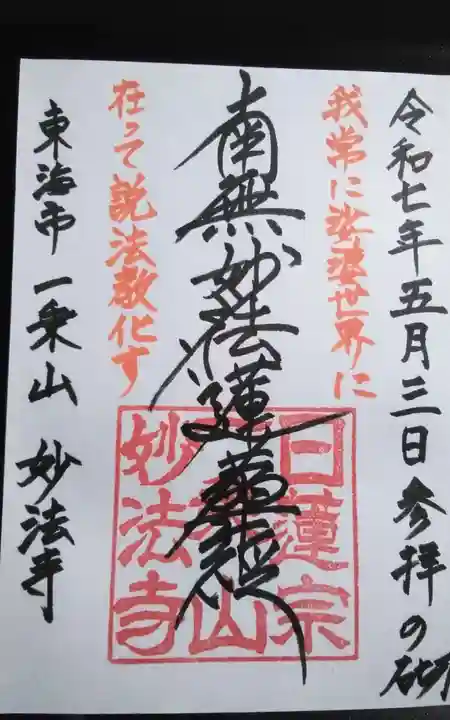 令和七年五月三日 参拝の砌
我常に娑婆世界に
南無妙法蓮華経
在って説法教化す
東海市 一乗山 妙法寺
日蓮宗
一乗山
妙法寺